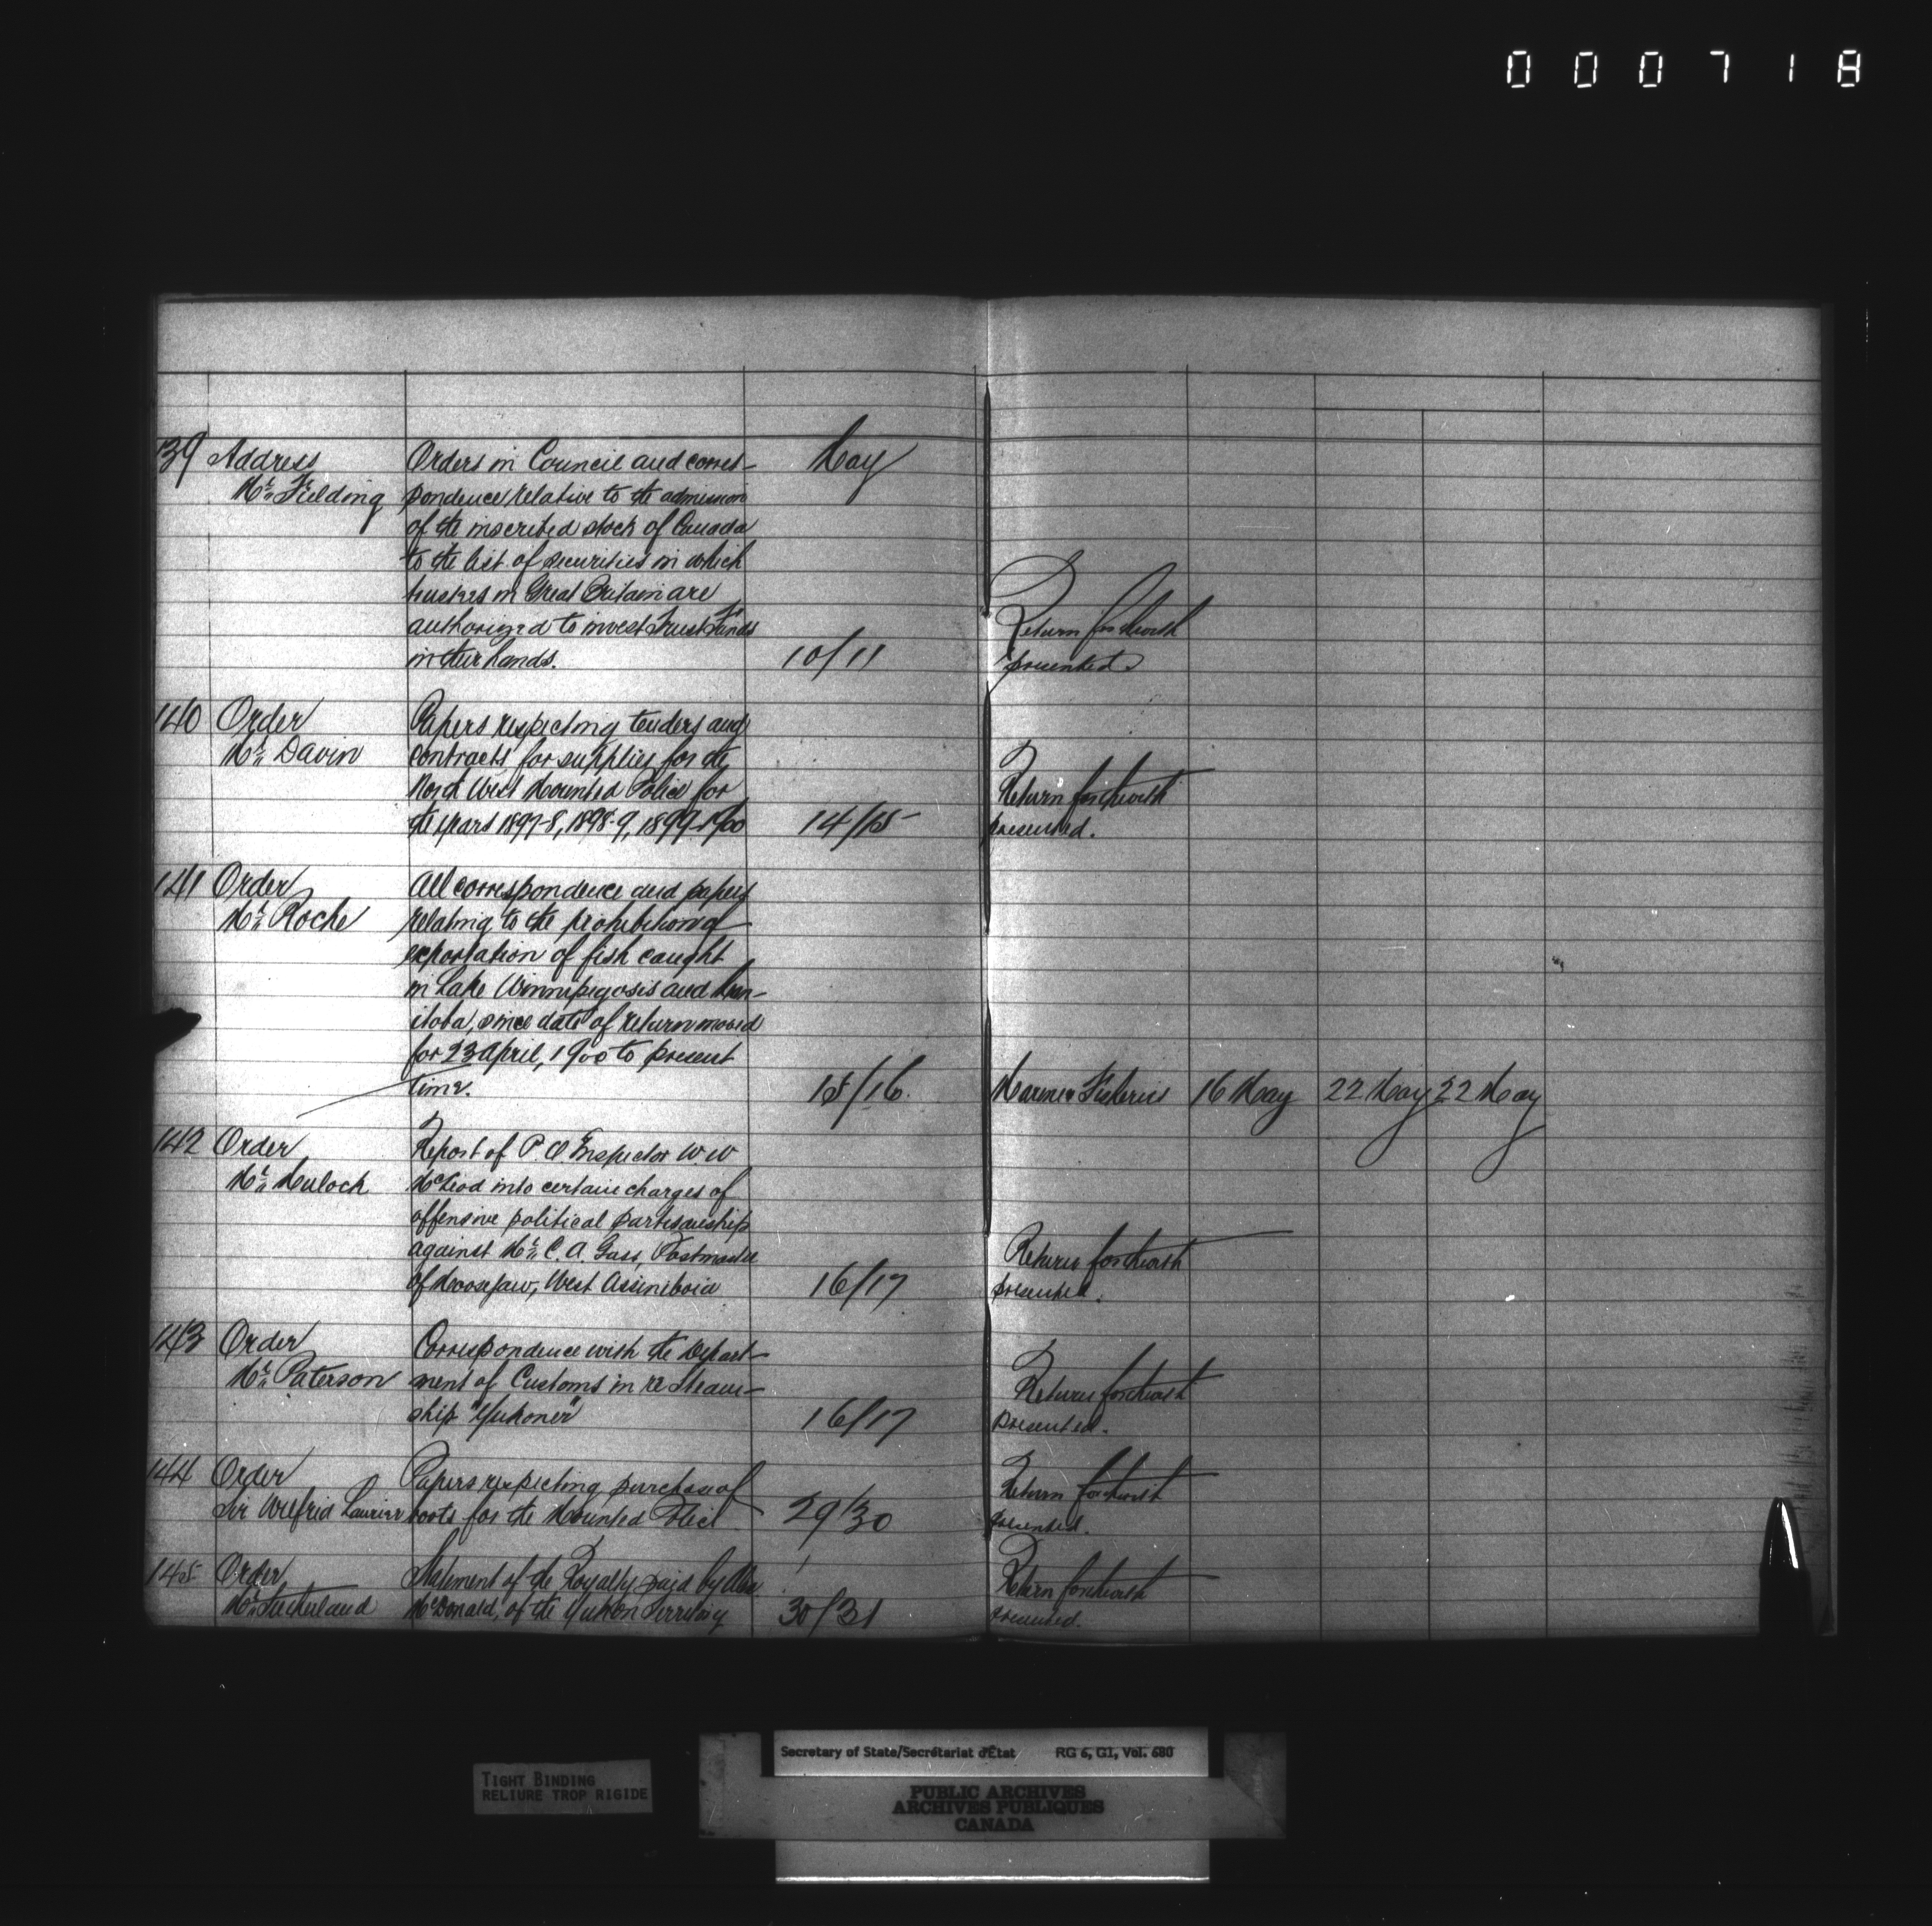 000718
139 Address Orders in Council and corres- May
Mr. Fielding pondence relative to the admission
of the inscribed stock of Canada
to the list of securities in which
trustees in Great Britain are
authorized to invest Trust Funds Return forthwith
in their hands. 10/11 presented.
140 Order Papers respecting tenders and
Mr. Davin contracts for supplies for the
North West Mounted Police for Return forthwith
the years 1897-8, 1898-9, 1899-1900 14/15 presented.
141 Order All correspondence and papers
Mr. Roche relating to the prohibition of
exportation of fish caught
in Lake Winnipegosis and Man-
itoba, since date of return moved
for 23 April, 1900 to present
time. 15/16 Marine & Fisheries 16 May 22 May 22 May
142 Order Report of P.O. Inspector W. W
Mr. Mulock McLeod into certain charges of
offensive political partisanship
against Mr. C. A. Gass, Postmaster Return forthwith
of Moosejaw, West Assiniboia 16/17 presented.
143 Order Correspondence with the Depart-
Mr. Paterson ment of Customs in re Steam- Return forthwith
ship "Yukoner" 16/17 presented.
144 Order Papers respecting purchase of Return forthwith
Sir Wilfrid Laurier boots for the Mounted Police 29/30 presented.
145 Order Statement of the Royalty paid by Alex Return forthwith
Mr. Sutherland McDonald, of the Yukon Territory 30/31 presented.
Secretary of State/Secrétariat d'État RG 6, G1, Vol. 680
TIGHT BINDING
RELIURE TROP RIGIDE
PUBLIC ARCHIVES
ARCHIVES PUBLIQUES
CANADA